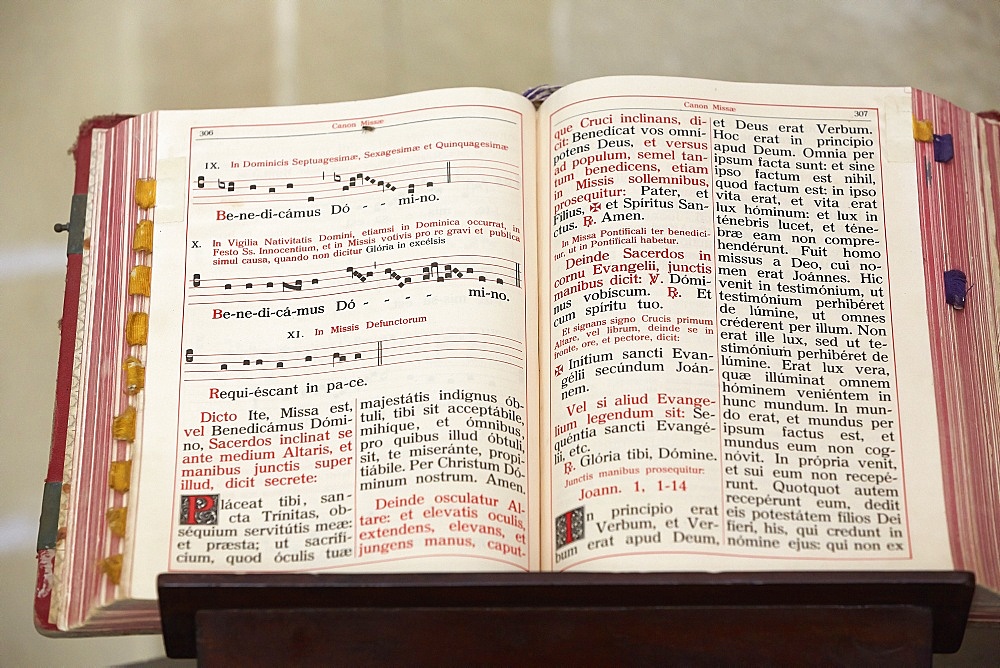 306
Canon Missæ
IX. In Dominicis Septuagesimæ, Sexagesimæ et Quinquagesimæ
Be-ne-di-cámus Dó - - mi-no.
X. In Vigilia Nativitatis Domini, etiamsi in Dominica occurrat, in
Festo Ss. Innocentium, et in Missis votivis pro re gravi et publica
simul causa, quando non dicitur Glória in excélsis
Be-ne-di-cá-mus Dó - - - - mi-no.
XI. In Missis Defunctorum
Requi-éscant in pa-ce.
Dicto Ite, Missa est,
vel Benedicámus Dómi-
no, Sacerdos inclinat se
ante medium Altaris, et
manibus junctis super
illud, dicit secrete:
Pláceat tibi, san-
cta Trinitas, ob-
séquium servitútis meæ:
et præsta; ut sacrifí-
cium, quod óculis tuæ
majestátis indignus ób-
tuli, tibi sit acceptábile,
mihique, et ómnibus,
pro quibus illud óbtuli,
sit, te miseránte, propi-
tiábile. Per Christum Dó-
minum nostrum. Amen.
Deinde osculatur Al-
tare: et elevatis oculis,
extendens, elevans, et
jungens manus, caput-
Canon Missæ
307
que Cruci inclinans, di-
cit: Benedicat vos omni-
potens Deus, et versus
ad populum, semel tan-
tum benedicens, etiam
in Missis sollemnibus,
prosequitur: Pater, et
Filius, ✠ et Spiritus San-
ctus. ℟. Amen.
In Missa Pontificali ter benedici-
tur, ut in Pontificali habetur.
Deinde Sacerdos in
cornu Evangelii, junctis
manibus dicit: ℣. Dómi-
nus vobiscum. ℟. Et
cum spíritu tuo.
Et signans signo Crucis primum
Altare, vel librum, deinde se in
fronte, ore, et pectore, dicit:
✠ Initium sancti Evan-
gélii secúndum Joán-
nem.
Vel si aliud Evange-
lium legendum sit: Se-
quéntia sancti Evangé-
lii, etc.
℟. Glória tibi, Dómine.
Junctis manibus prosequitur:
Joann. 1, 1-14
In principio erat
Verbum, et Ver-
bum erat apud Deum,
et Deus erat Verbum.
Hoc erat in princípio
apud Deum. Omnia per
ipsum facta sunt: et sine
ipso factum est nihil,
quod factum est: in ipso
vita erat, et vita erat
lux hóminum: et lux in
ténebris lucet, et téne-
bræ eam non compre-
hendérunt. Fuit homo
missus a Deo, cui no-
men erat Joánnes. Hic
venit in testimónium, ut
testimónium perhibéret
de lúmine, ut omnes
créderent per illum. Non
erat ille lux, sed ut te-
stimónium perhibéret de
lúmine. Erat lux vera,
quæ illúminat omnem
hóminem veniéntem in
hunc mundum. In mun-
do erat, et mundus per
ipsum factus est, et
mundus eum non cog-
nóvit. In própria venit,
et sui eum non recepé-
runt. Quotquot autem
recepérunt eum, dedit
eis potestátem fílios Dei
fíeri, his, qui credunt in
nómine ejus: qui non ex